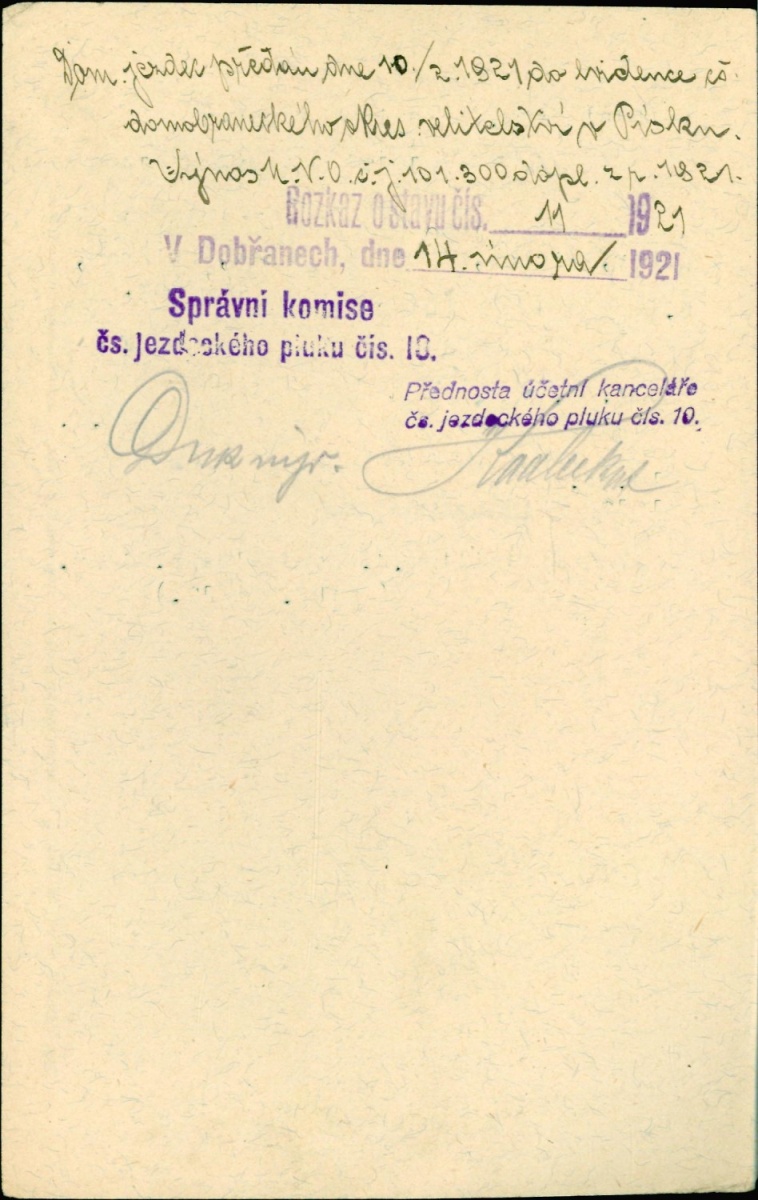 Dom. jezdec předán dne 10./2. 1921 do evidence čs.
domobraneckého okres. velitelství v Písku.
Výnos M.N.O. č.j. 101.300 dopl. z r. 1921.
Rozkaz o stavu čís. 11 1921
V Dobřanech, dne 14. února 1921
Správní komise
čs. jezdeckého pluku čís. 10.
Přednosta účetní kanceláře
čs. jezdeckého pluku čís. 10.